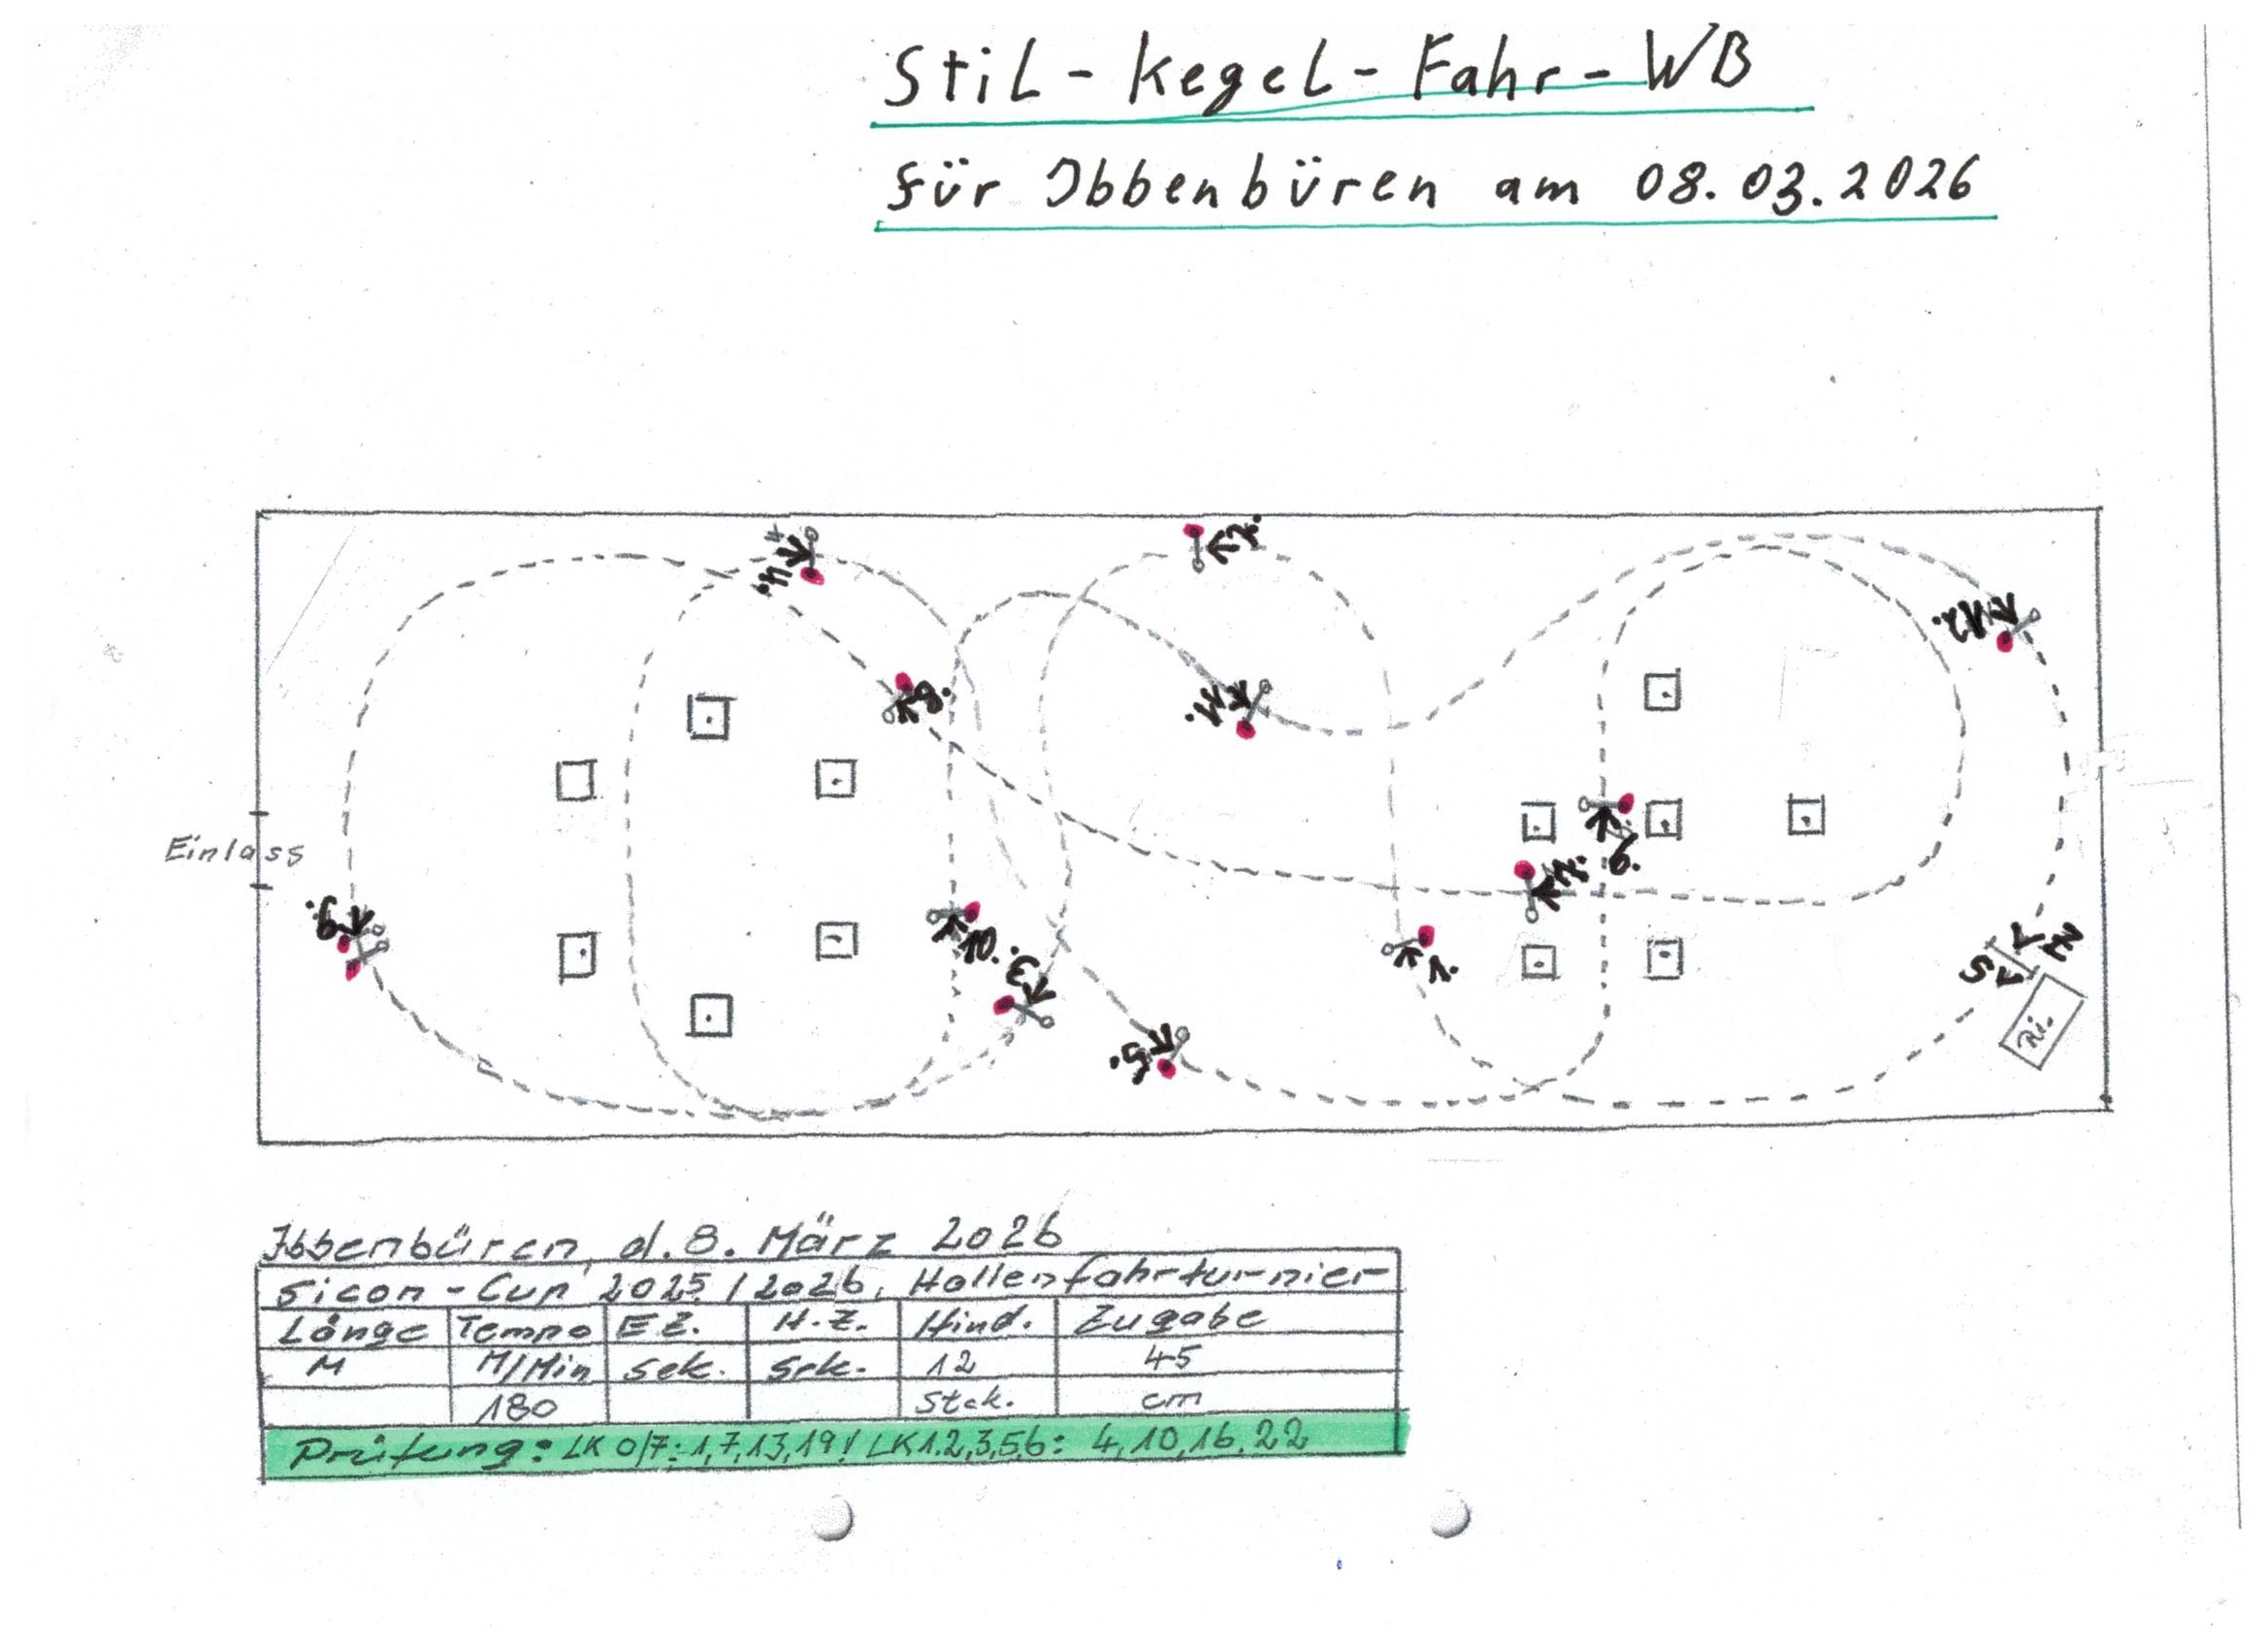 Stil - Kegel - Fahr - WB
für Ibbenbüren am 08.03.2026
4
4.
2.
12.
8.
11.
6.
7.
Einlass
9.
10.
3.
1.
Z
S
5.
Ri.
Ibbenbüren, d. 8. März 2026
Sicon - Cup 2025/2026, Hallenfahrturnier
Länge Tempo E.Z. H.Z. Hind. Zugabe
M M/Min sek. sek. 12 45
180 Stck. cm
Prüfung: LK 0/7: 1,7,13,19! LK 1.2,3,5,6: 4,10,16,22